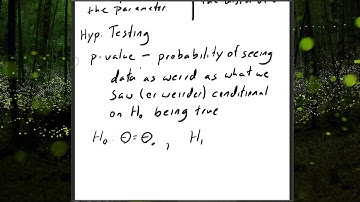 the parameter.
Hyp. Testing
p-value - probability of seeing
data as weird as what we
saw (or weirder) conditional
on H₀ being true
H₀: Θ=Θ₀, H₁